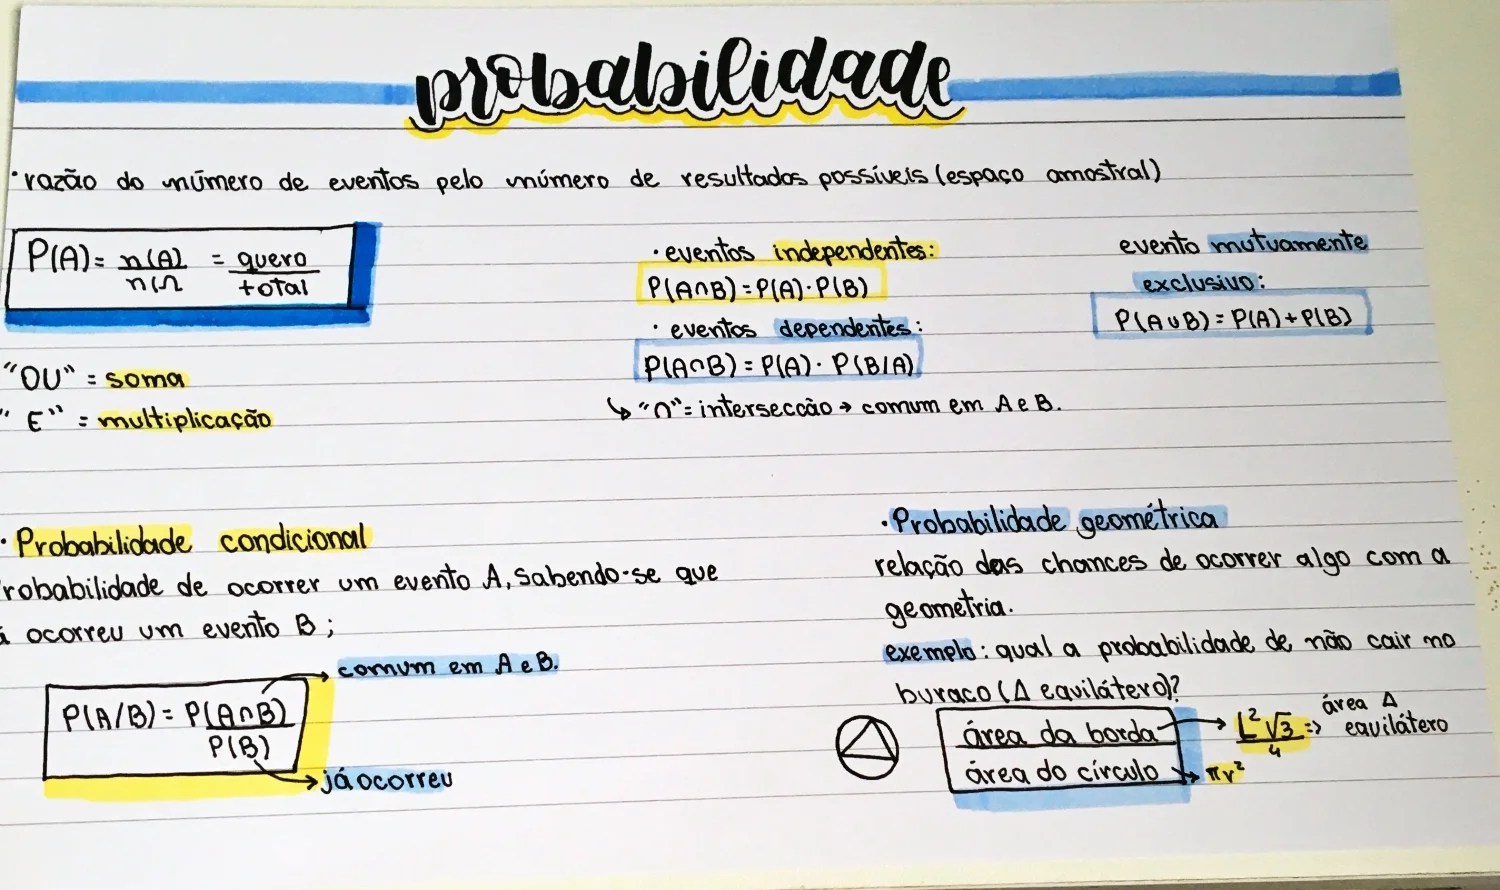 probabilidade
• razão do número de eventos pelo número de resultados possíveis (espaço amostral)
P(A) = n(A) / n(Ω = quero / total
"OU" = soma
" E" = multiplicação
• eventos independentes:
P(A∩B) = P(A) · P(B)
• eventos dependentes:
P(A∩B) = P(A) · P(B/A)
↳ "∩" = intersecção → comum em A e B.
evento mutuamente
exclusivo:
P(A∪B) = P(A) + P(B)
• Probabilidade condicional
robabilidade de ocorrer um evento A, sabendo-se que
á ocorreu um evento B;
P(A/B) = P(A∩B) / P(B)
→ comum em A e B.
→ já ocorreu
• Probabilidade geométrica
relação das chances de ocorrer algo com a
geometria.
exemplo: qual a probabilidade de não cair no
buraco (Δ equilátero)?
área da borda → L²√3 / 4 => área Δ equilátero
área do círculo → πr²